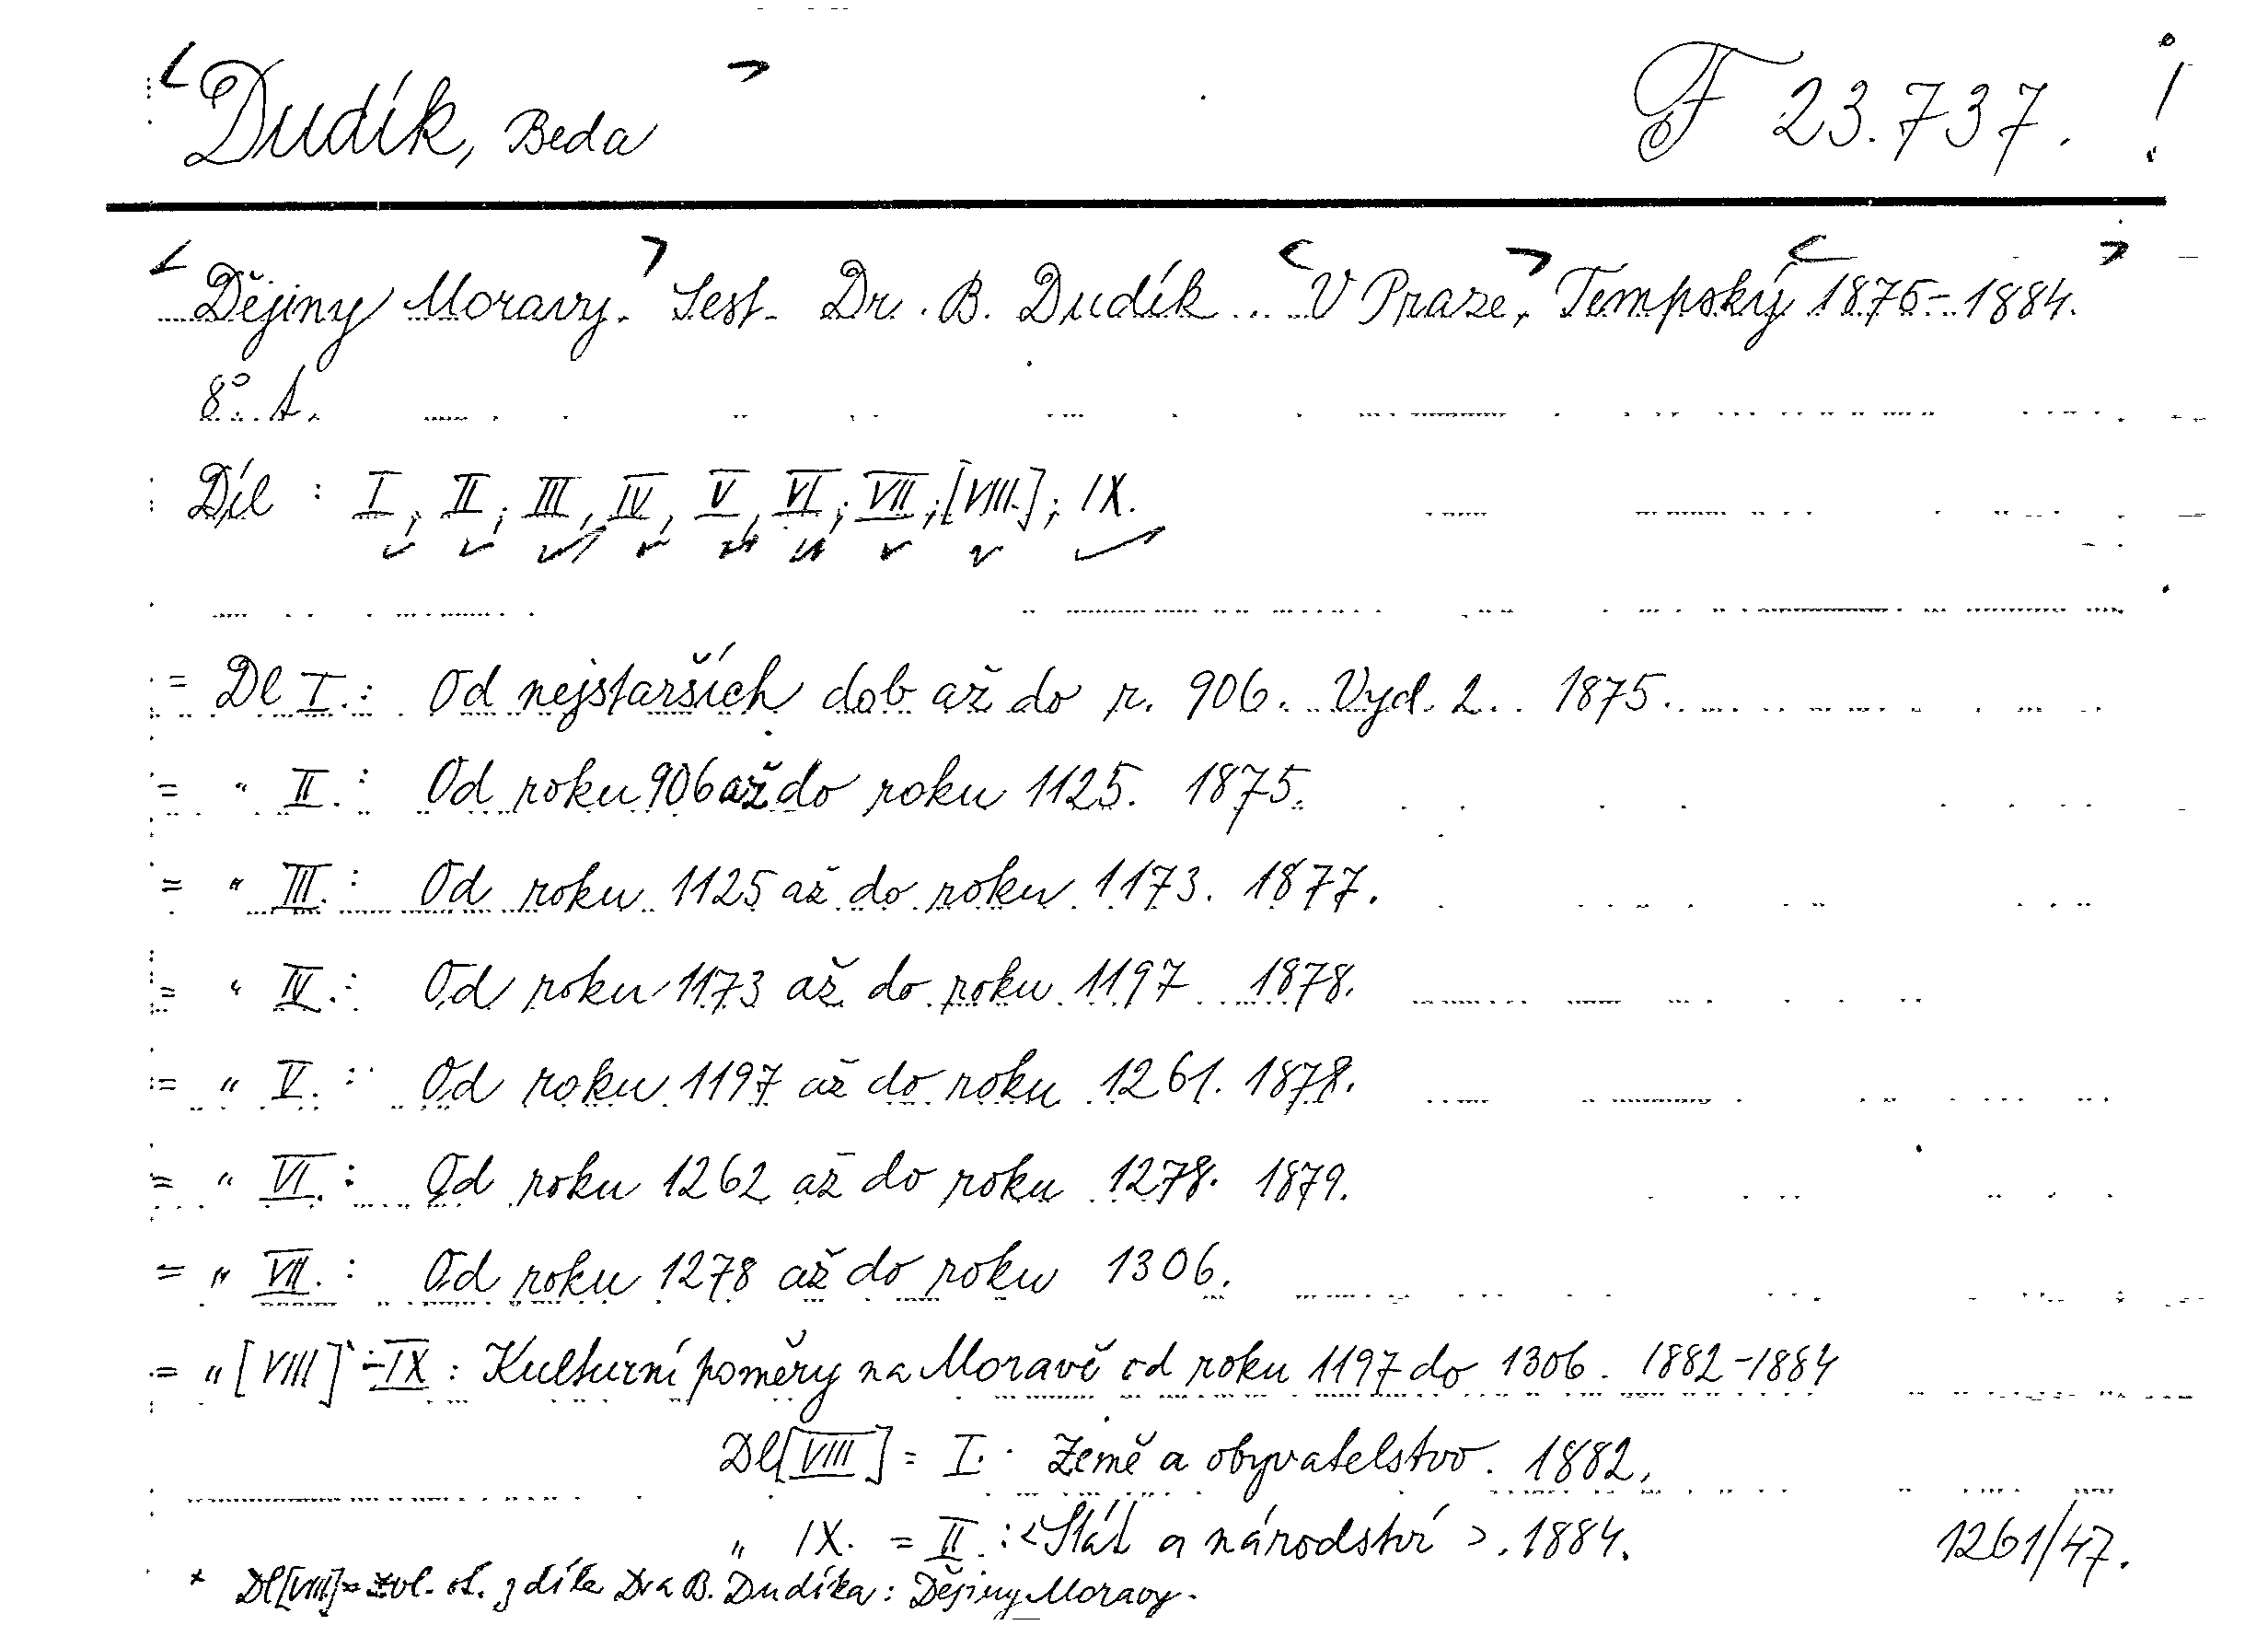 <Dudík, Beda> F 23.737. !
<Dějiny Moravy.> Sest. Dr. B. Dudík... <V Praze,> Tempský <1875-1884.>
8°. t.
Díl : I, II, III, IV, V, VI; VII; [VIII.]; IX.
= Dl I.: Od nejstarších dob až do r. 906. Vyd. 2.. 1875.
= " II.: Od roku 906 až do roku 1125. 1875.
= " III.: Od roku 1125 až do roku 1173. 1877.
= " IV.: Od roku 1173 až do roku 1197 1878.
= " V.: Od roku 1197 až do roku 1261. 1878.
= " VI.: Od roku 1262 až do roku 1278. 1879.
= " VII.: Od roku 1278 až do roku 1306.
= " [VIII]-IX : Kulturní poměry na Moravě od roku 1197 do 1306. 1882-1884
Dl[VIII] = I. Země a obyvatelstvo. 1882.
" IX. = II.: <Stát a národství>. 1884. 1261/47.
* Dl[VIII] = zvl. ot. z díla Dra B. Dudíka: Dějiny Moravy.